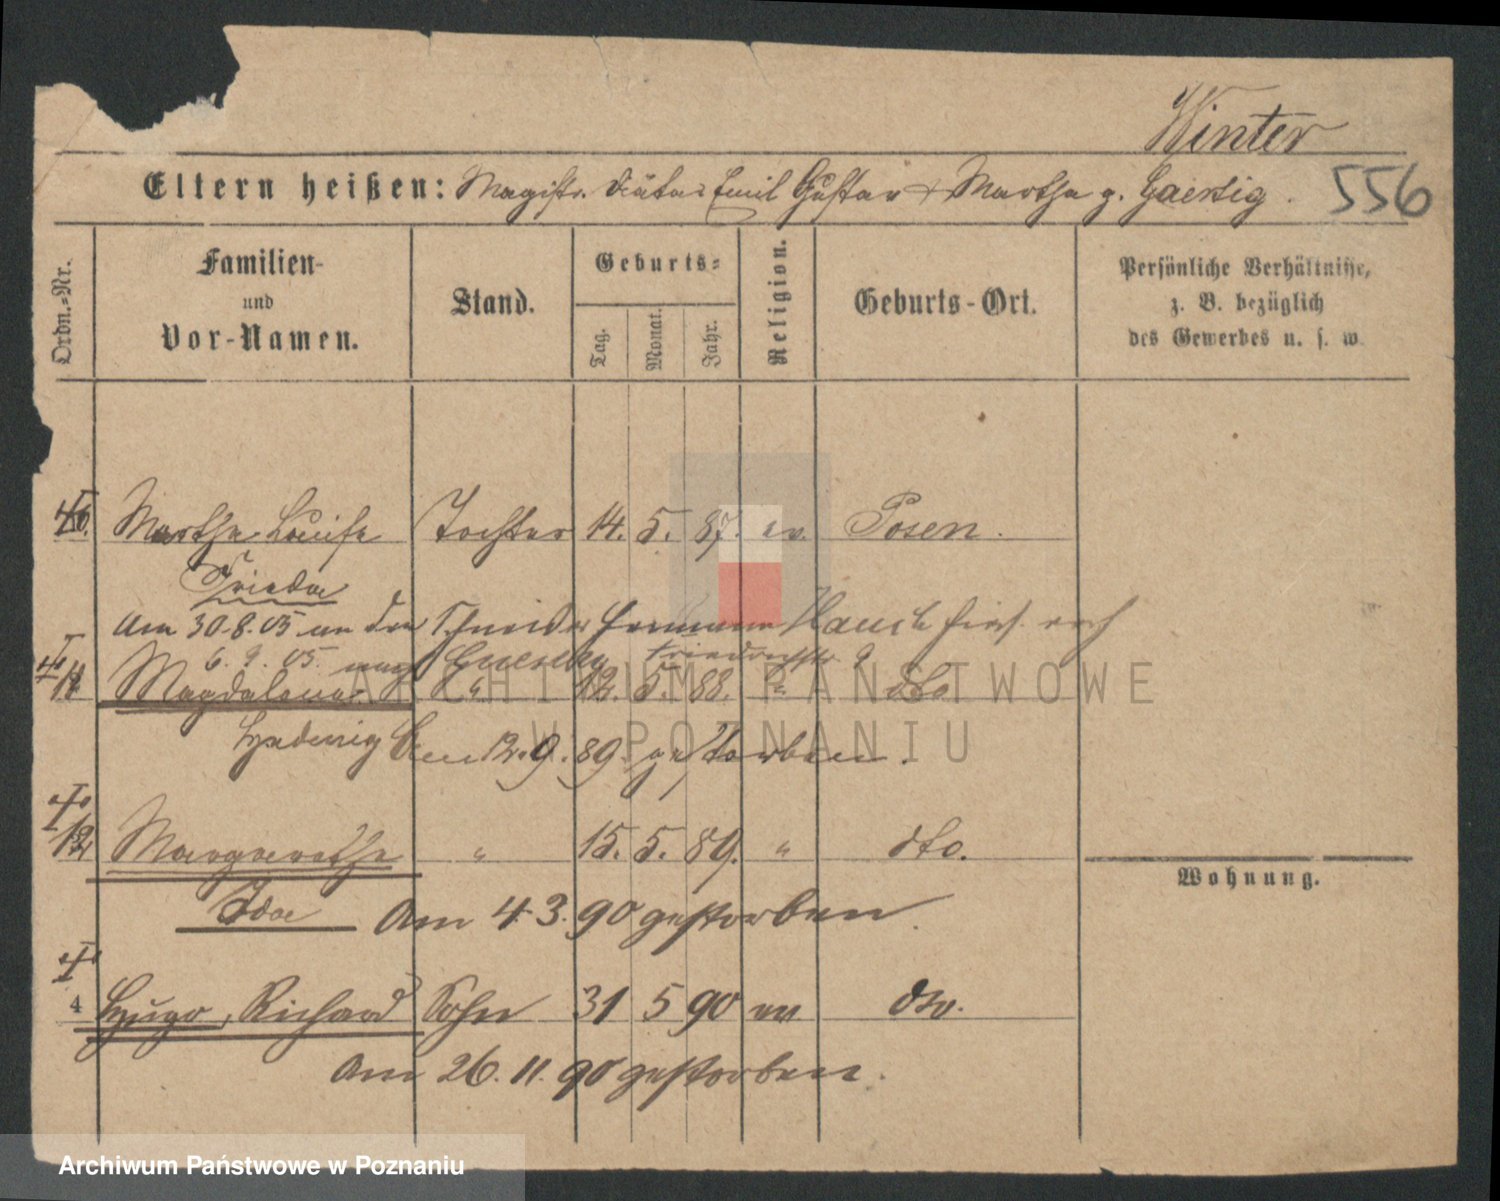 Winter
Eltern heißen: Magistr. Diätar Emil Gustav + Martha g. Gaertig.
556
Ordn.-Nr.
Familien-
und
Vor-Namen.
Stand.
Geburts-
Tag.
Monat.
Jahr.
Religion.
Geburts-Ort.
Persönliche Verhältnisse,
z. B. bezüglich
des Gewerbes u. s. w.
Martha Louise Tochter 14. 5. 87. ev. Posen.
Frieda
Am 30.8.05 an den Schneider Hermann
6. 9. 05. nach Friedrichstr. 9
11 Magdalena " 12. 5. 88. " dto
Hedwig Am 12.9.89 gestorben.
12 Margarethe " 15. 5. 89. " dto.
Wohnung.
Ida Am 4.3.90 gestorben.
4 Hugo, Richard Sohn 31 5 90 ev dto.
Am 26.11.90 gestorben.
ARCHIWUM PAŃSTWOWE
W POZNANIU
Archiwum Państwowe w Poznaniu